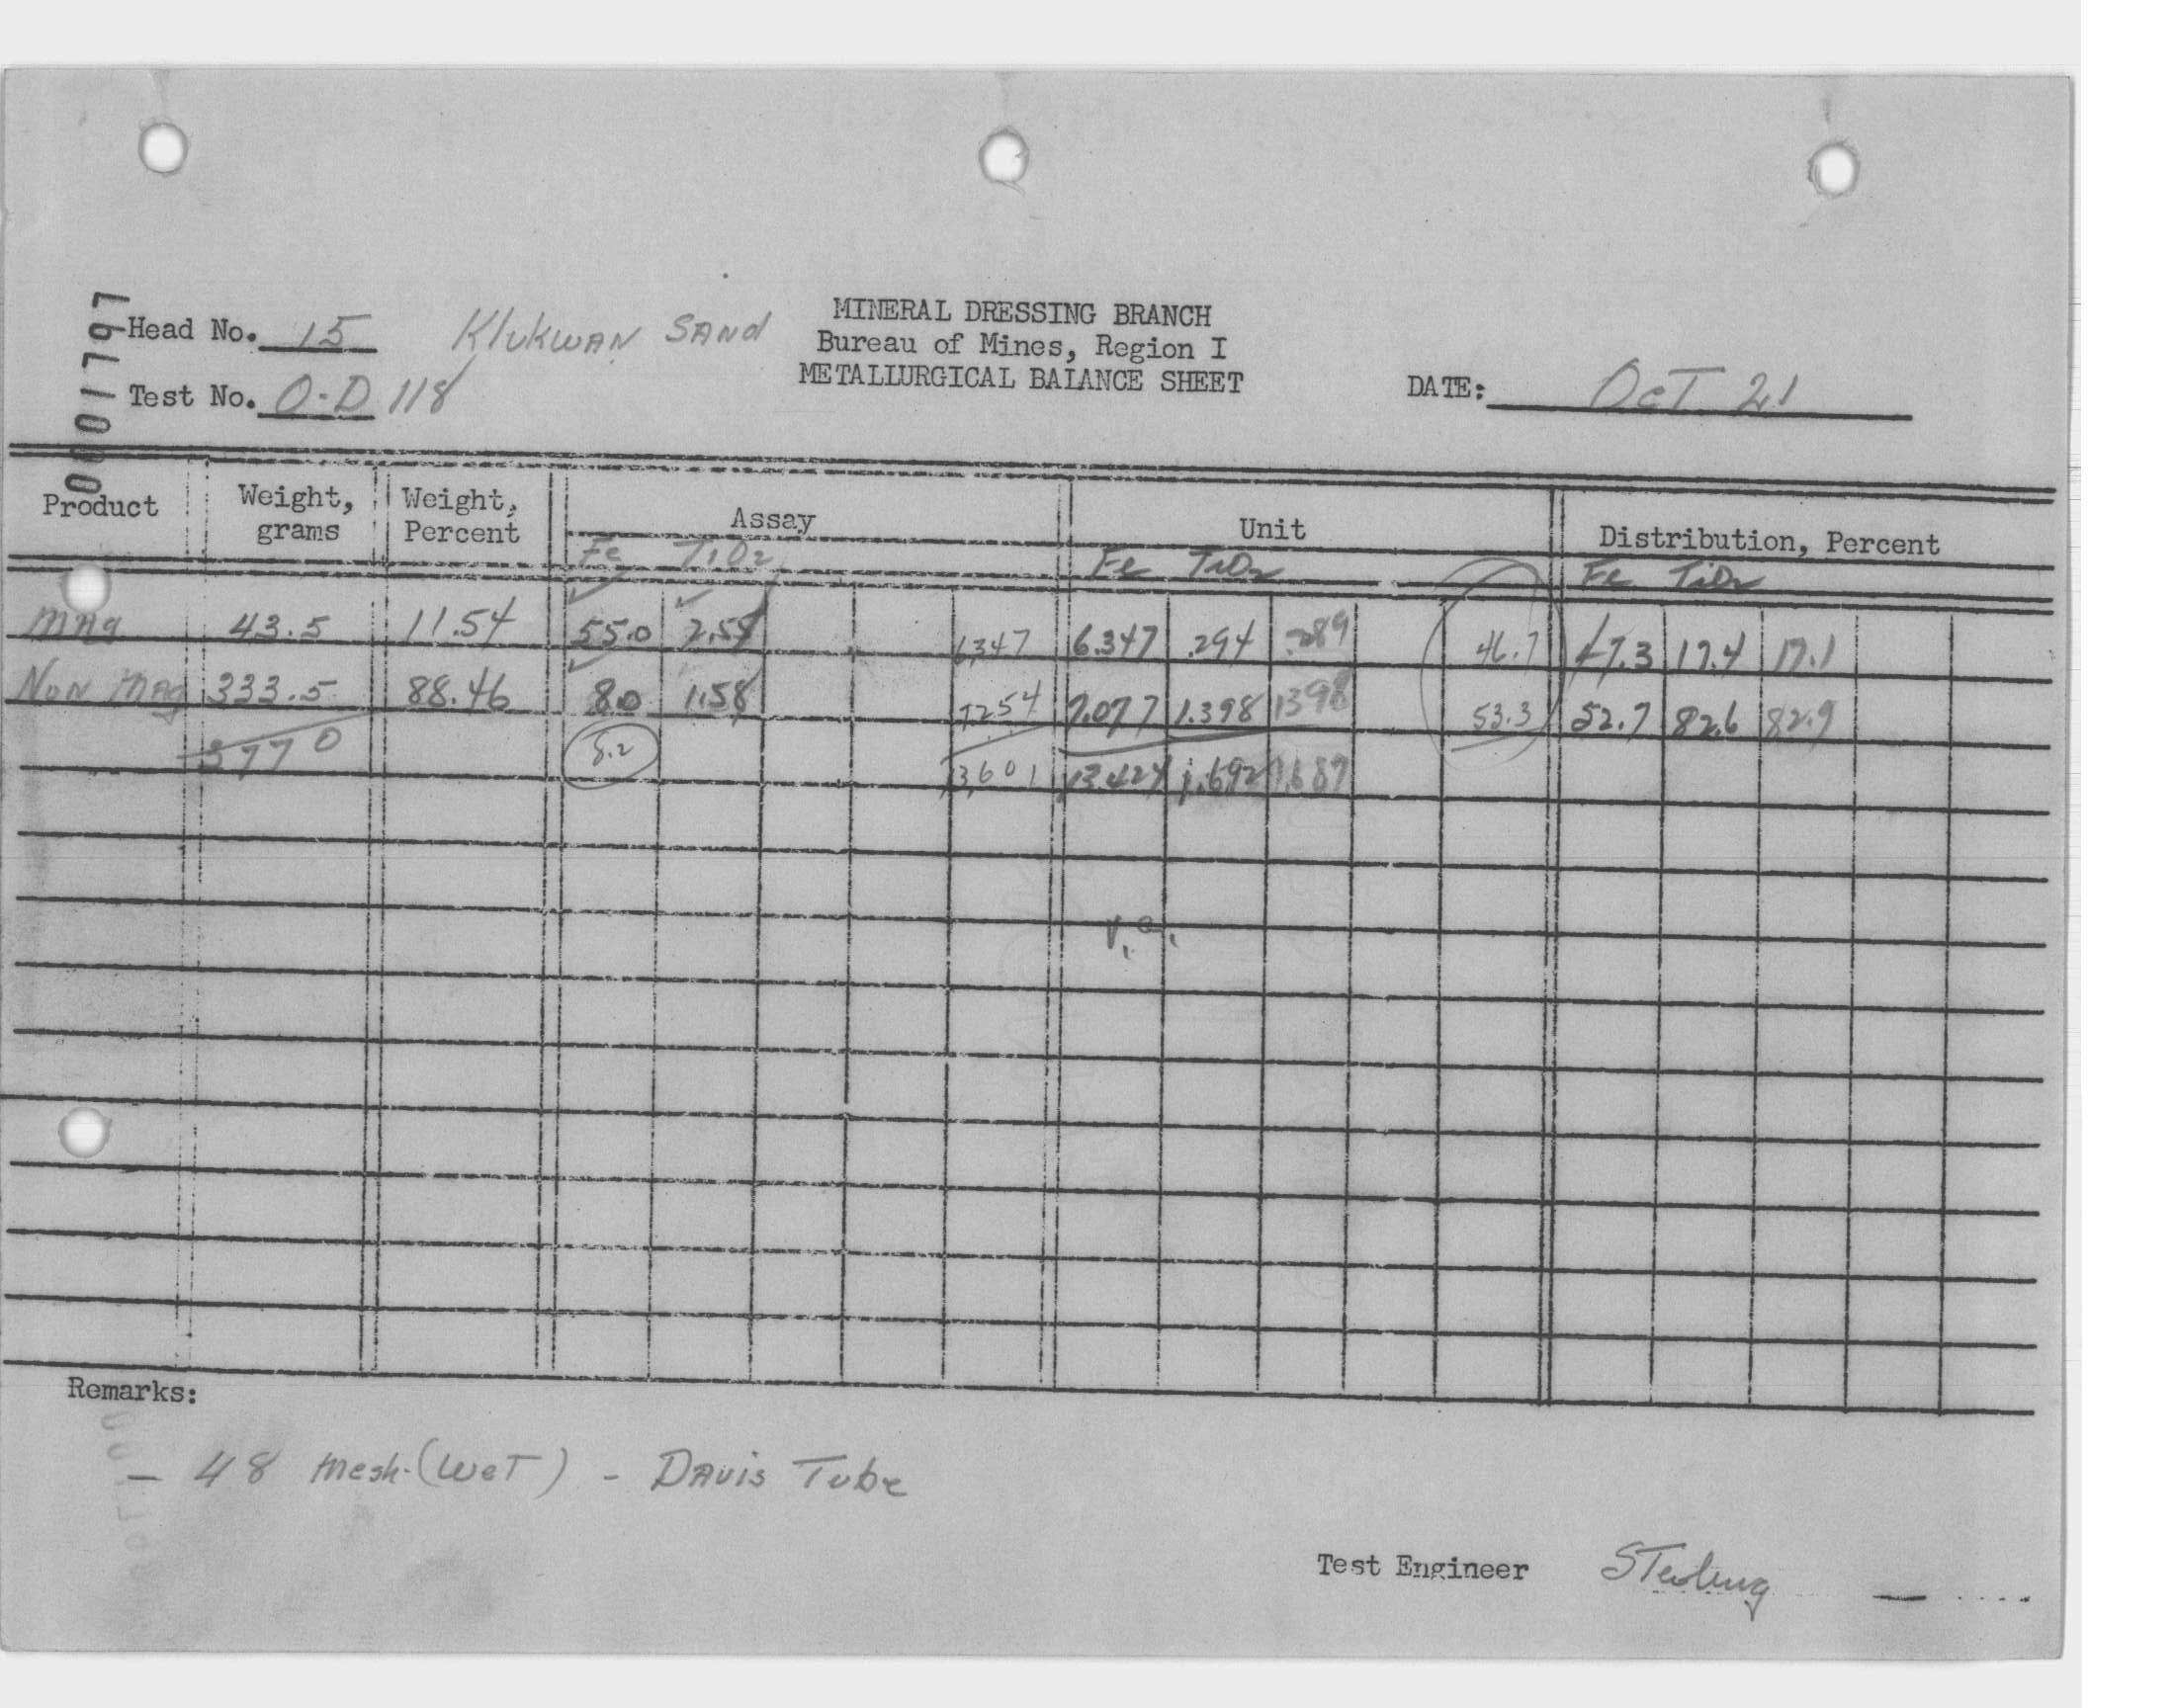 0001797
MINERAL DRESSING BRANCH
Head No. 15 Klukwan Sand Bureau of Mines, Region I
Test No. O-D 118 METALLURGICAL BALANCE SHEET DATE: Oct 21
Product Weight, grams Weight, Percent Assay Unit Distribution, Percent
Fe TiO2 Fe TiO2 Fe TiO2
Mag 43.5 11.54 55.0 2.55 6347 6.347 .294 .289 46.7 47.3 17.4 17.1
Non Mag 333.5 88.46 8.0 1.58 7254 7.077 1.398 1398 53.3 52.7 82.6 82.9
377 0 8.2 13,601 13.424 1.692 1.687
Remarks:
- 48 mesh (wet) - Davis Tube
Test Engineer Sterling